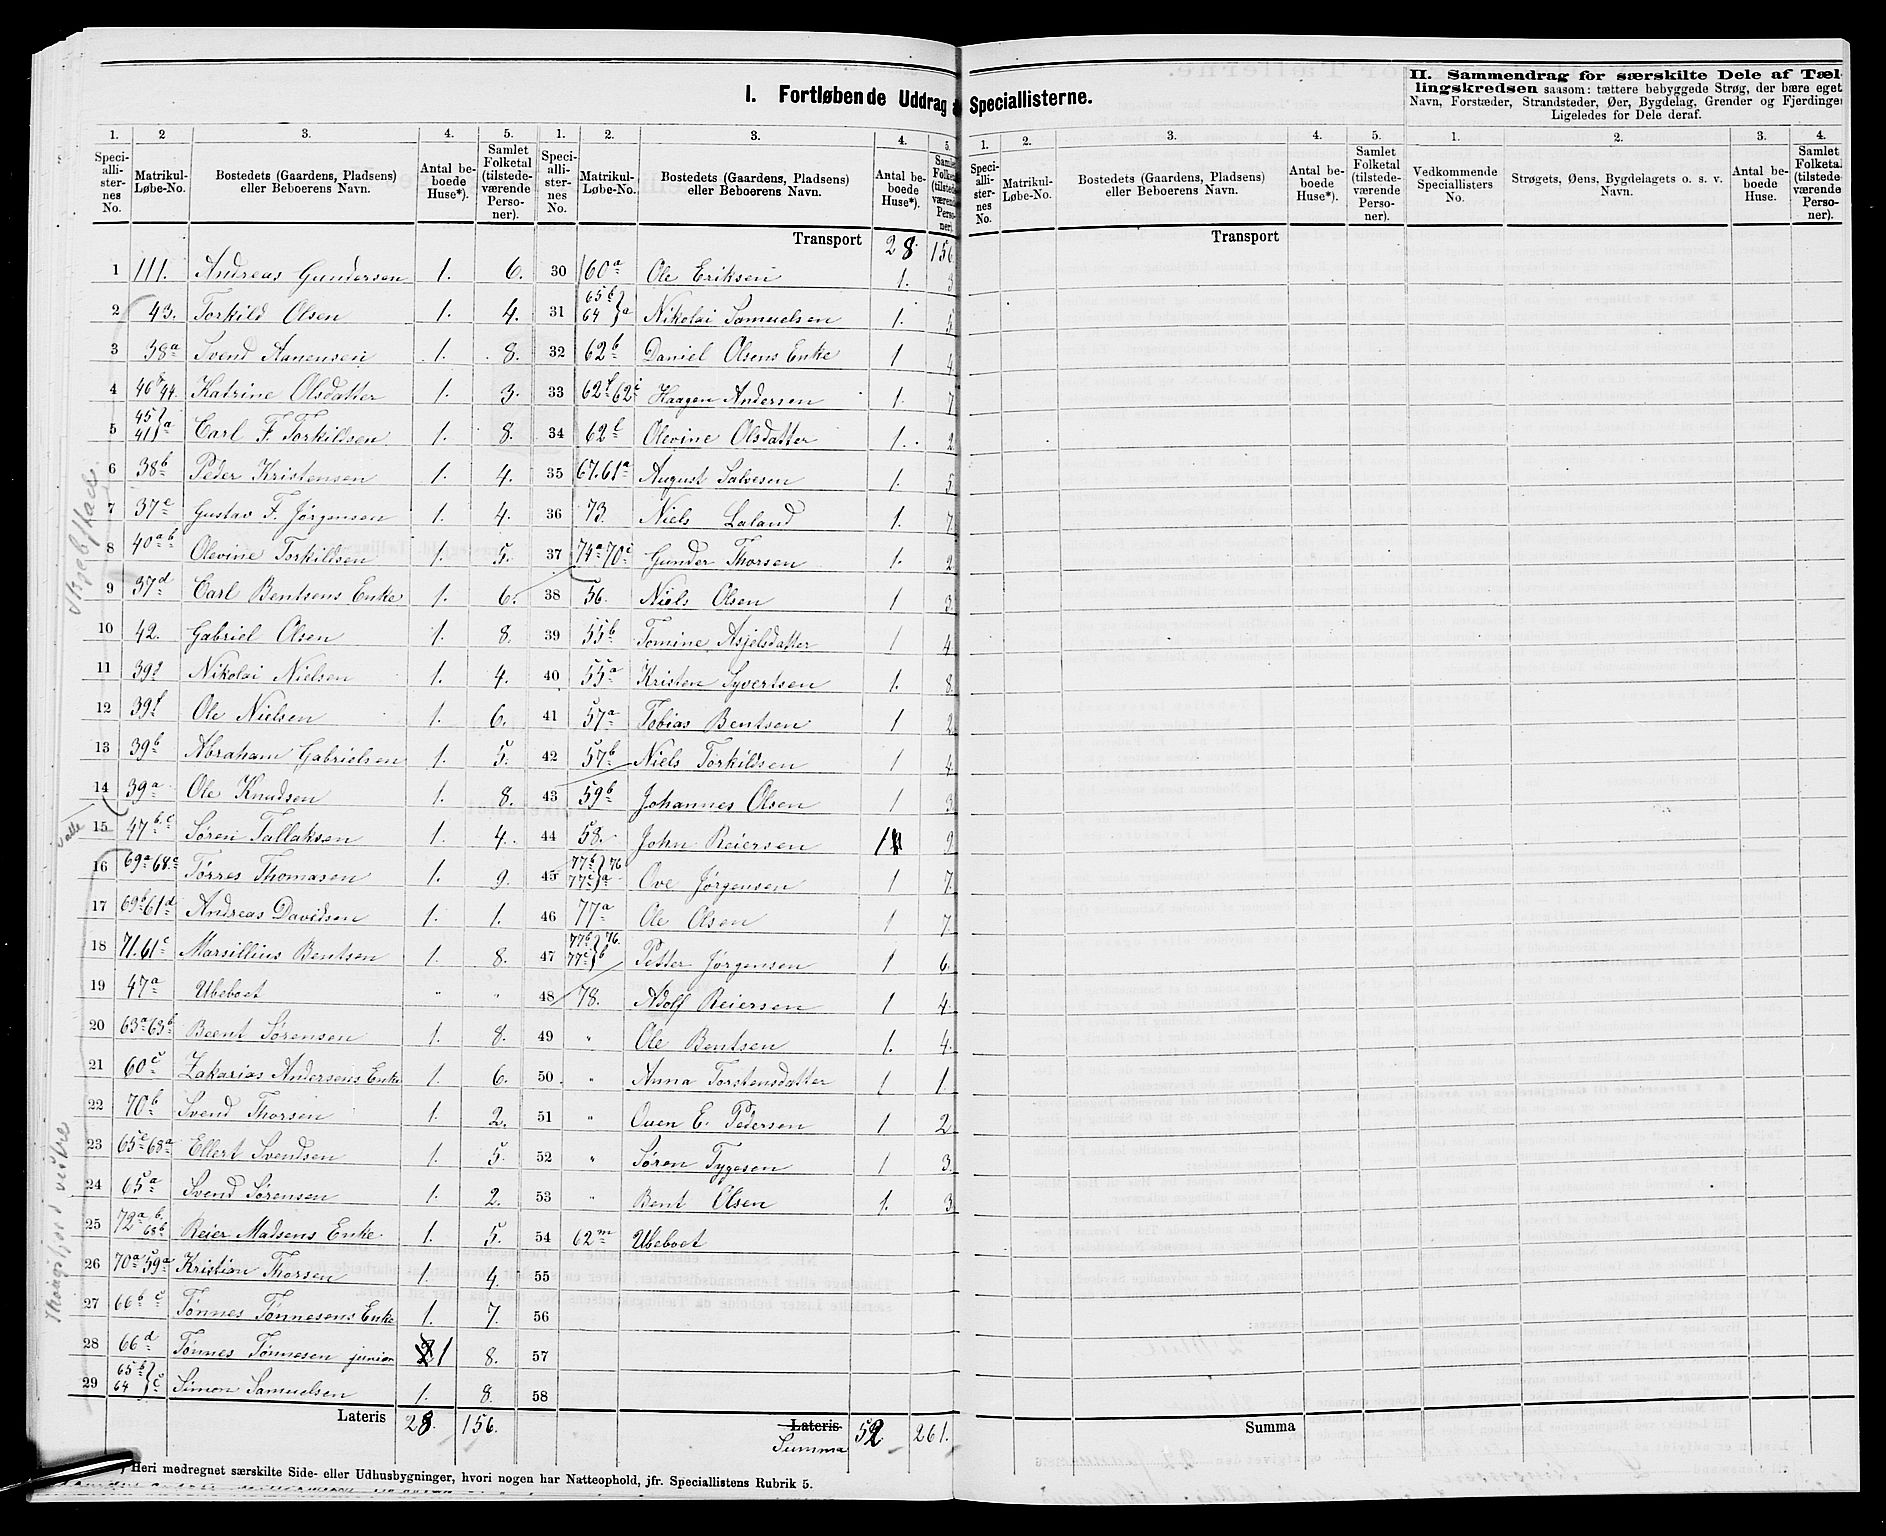 I. Fortløbende Uddrag a Speciallisterne.
II. Sammendrag for særskilte Dele af Tæl-
lingskredsen saasom: tættere bebyggede Strøg, der bære eget
Navn, Forstæder, Strandsteder, Øer, Bygdelag, Grender og Fjerdinger
Ligeledes for Dele deraf.
1. 2 3. 4. 5. 1. 2. 3. 4. 5. 1. 2. 3. 4. 5. 1. 2. 3. 4.
Speci-alli-ster-nes No. Matrikul-Løbe-No. Bostedets (Gaardens, Pladsens) eller Beboerens Navn. Antal be-boede Huse*). Samlet Folketal (tilstede-værende Perso-ner).
Speci-alli-ster-nes No. Matrikul-Løbe-No. Bostedets (Gaardens, Pladsens) eller Beboerens Navn. Antal be-boede Huse*). Samlet Folketal (tilstede-værende Perso-ner).
Speci-alli-ster-nes No. Matrikul-Løbe-No. Bostedets (Gaardens, Pladsens) eller Beboerens Navn. Antal be-boede Huse*). Samlet Folketal (tilstede-værende Perso-ner).
Vedkommende Speciallisters No. Strøgets, Øens, Bygdelagets o. s. v. Navn. Antal be-boede Huse. Samlet Folketal (tilstede-værende Perso-ner).
1 111. Andreas Gundersen 1. 6.
2 43. Torkild Olsen 1. 4.
3 38a Svend Aanensen 1. 8.
4 46 44. Katrine Olsdatter 1. 3.
5 45 41 a Carl F. Torkildsen 1. 8.
6 38b Peder Kristensen 1. 4.
7 37e Gustav F. Jørgensen 1. 4.
8 40a b Olevine Torkildsen 1. 5.
9 37d Carl Bentsens Enke 1. 6.
10 42. Gabriel Olsen 1. 8.
11 39 Nikolai Nielsen 1. 4.
12 39f Ole Nielsen 1. 6.
13 39b Abraham Gabrielsen 1. 5.
14 39a Ole Knudsen 1. 8.
15 47b c Søren Tallaksen 1. 4.
16 69a 68c Tørres Thomasen 1. 9.
17 69b 61d Andreas Davidsen 1. 1.
18 71. 61c Marsillius Bentsen 1. 8.
19 47a Ubeboet " "
20 63a 63b Beent Sørensen 1. 8.
21 60c Zakarias Andersens Enke 1. 6.
22 70b Svend Thorsen 1. 2.
23 65c 68a Ellert Svendsen 1. 5.
24 65a Svend Sørensen 1. 2.
25 72a b. 68b Reier Madsens Enke 1. 5.
26 70a 59a Kristian Thorsen 1. 4.
27 66b c Tønnes Tønnesens Enke 1. 7.
28 66d Tønnes Tønnesen junior 1 8.
29 65b 64 c Simon Samuelsen 1. 8.
Lateris 28. 156.
Valle
Thongsfjord vestre
Transport 28. 156
30 60a Ole Eriksen 1. 3
31 65b 64 a Nikolai Samuelsen 1. 5
32 62b Daniel Olsens Enke 1 4
33 62f 62i Haagen Andersen 1. 7
34 62l Olevine Olsdatter 1. 2
35 67. 61a August Salvesen 1. 5
36 73. Niels Laland 1. 7
37 74a 70c Gunder Thorsen 1. 2
38 56. Niels Olsen 1 3
39 55b Tomine Asjelsdatter 1 4
40 55a Kristen Syvertsen 1. 8
41 57a Tobias Bentsen 1 2
42 57b Niels Torkildsen 1 4
43 59b Johannes Olsen 1 3
44 58. John Reiersen 1 9
45 77b 77c a 76 Ove Jørgensen 1 7.
46 77a Ole Olsen 1 7.
47 77b 77c b 76. Petter Jørgensen 1 6.
48 78. Adolf Reiersen 1 4.
49 " Ole Bentsen 1. 4.
50 " Anna Torstensdatter 1 1
51 " Ouen E. Pedersen 1 2
52 " Søren Tygesen 1 3.
53 " Bent Olsen 1. 3
54 62m Ubeboet
55
56
57
58
Lateris
Summa 52 261.
Transport
Summa
Heri medregnet særskilte Side- eller Udhusbygninger, hvori nogen har Natteophold, jfr. Speciallistens Rubrik 5.